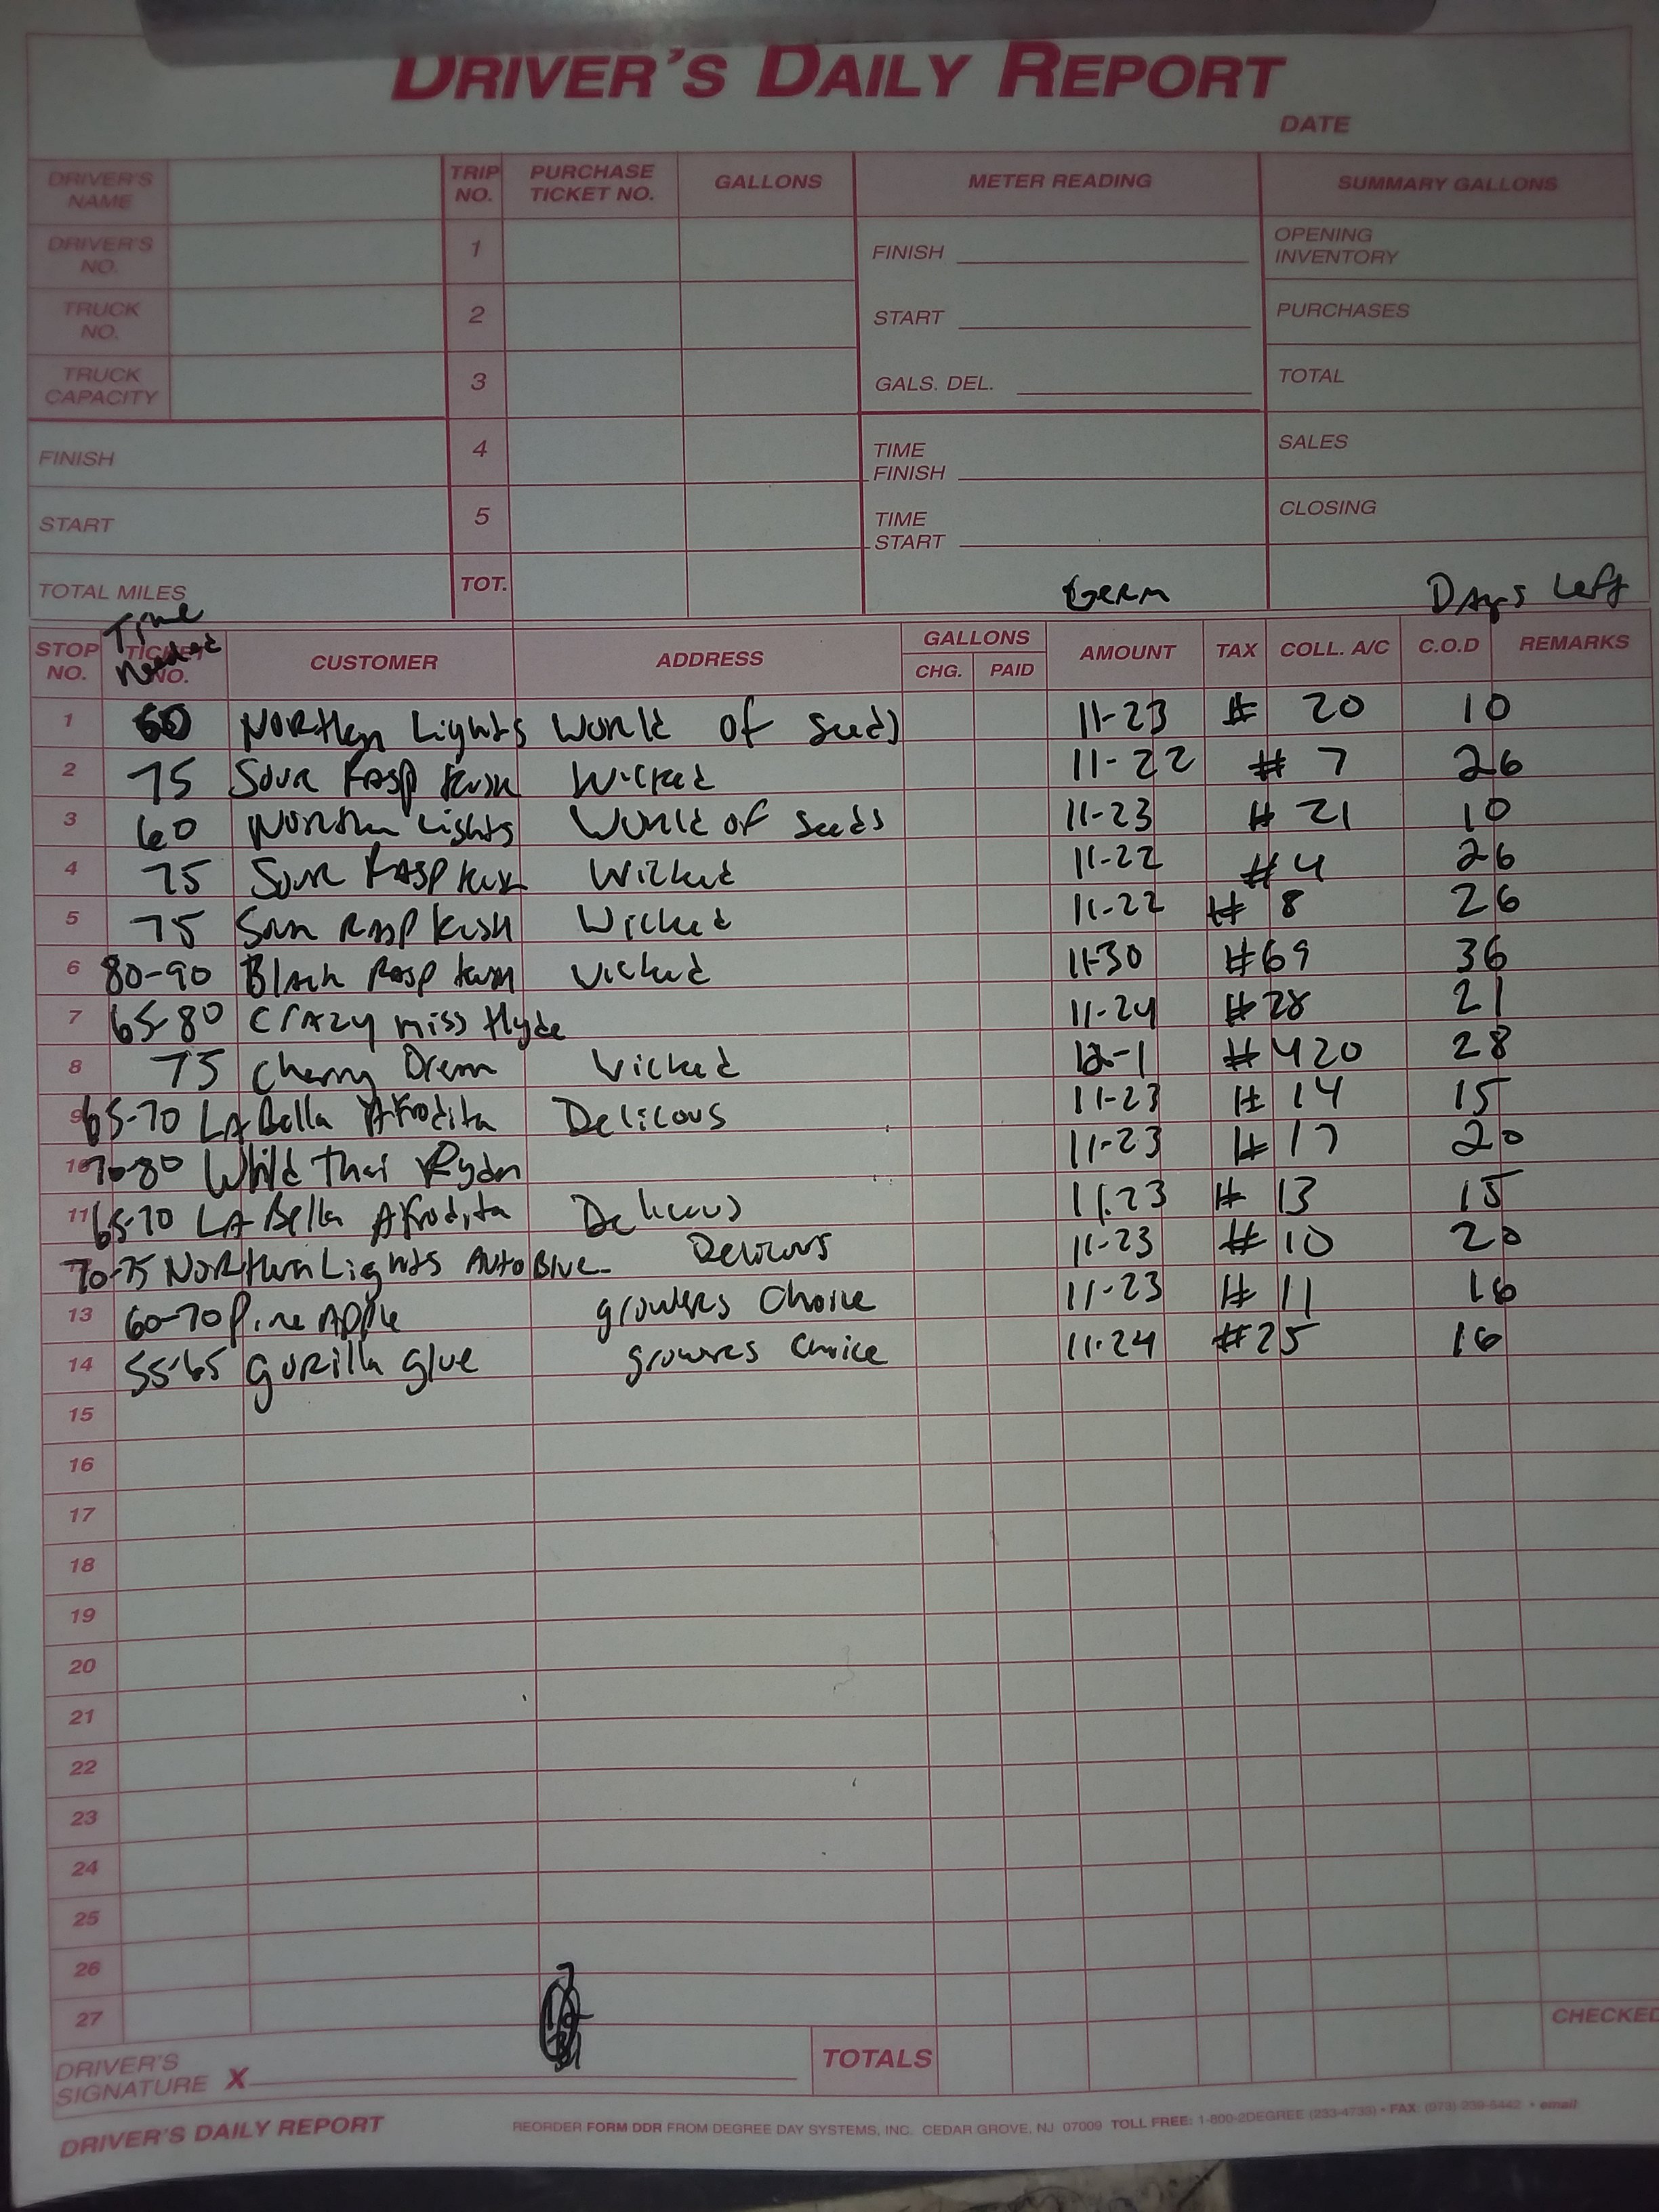 DRIVER'S DAILY REPORT
DATE
DRIVER'S NAME TRIP NO. PURCHASE TICKET NO. GALLONS METER READING SUMMARY GALLONS
DRIVER'S NO. 1 FINISH OPENING INVENTORY
TRUCK NO. 2 START PURCHASES
TRUCK CAPACITY 3 GALS. DEL. TOTAL
FINISH 4 TIME FINISH SALES
START 5 TIME START CLOSING
TOTAL MILES TOT. Germ Days Left
Time Needed
STOP NO. TICKET NO. CUSTOMER ADDRESS GALLONS CHG. PAID AMOUNT TAX COLL. A/C C.O.D REMARKS
1 60 Northern Lights World of Seeds 11-23 # 20 10
2 75 Sour Rasp Kush Wicked 11-22 # 7 26
3 60 Northern Lights World of Seeds 11-23 # 21 10
4 75 Sour Rasp Kush Wicked 11-22 #4 26
5 75 Sour Rasp Kush Wicked 11-22 # 8 26
6 80-90 Black Rasp Kush Wicked 11-30 #69 36
7 65-80 Crazy miss Hyde 11-24 #28 21
8 75 Cherry Dream Wicked 12-1 #420 28
9 65-70 LA Bella Afrodita Delicous 11-23 # 14 15
10 70-80 Whild Thai Ryder 11-23 # 17 20
11 65-70 LA Bella Afrodita Delicous 11-23 # 13 15
70-75 Northern Lights Auto Blue Delicous 11-23 # 10 20
13 60-70 Pine Apple growers Choice 11-23 # 11 16
14 55-65 gorilla glue growers Choice 11-24 #25 16
15
16
17
18
19
20
21
22
23
24
25
26
27 CHECKED
DRIVER'S SIGNATURE X TOTALS
DRIVER'S DAILY REPORT REORDER FORM DDR FROM DEGREE DAY SYSTEMS, INC. CEDAR GROVE, NJ 07009 TOLL FREE: 1-800-2DEGREE (233-4733) • FAX: (973) 239-5442 • email